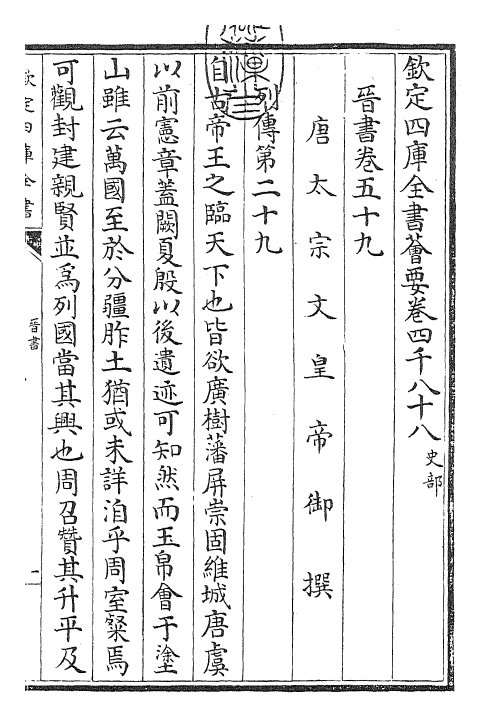 欽定四庫全書薈要卷四千八十八 史部
晉書卷五十九
唐太宗文皇帝御撰
列傳第二十九
自古帝王之臨天下也皆欲廣樹藩屏崇固維城唐虞
以前憲章蓋闕夏殷以後遺迹可知然而玉帛會于塗
山雖云萬國至於分疆胙土猶或未詳洎乎周室粲焉
可觀封建親賢並為列國當其興也周召贊其升平及
欽定四庫全書
晉書